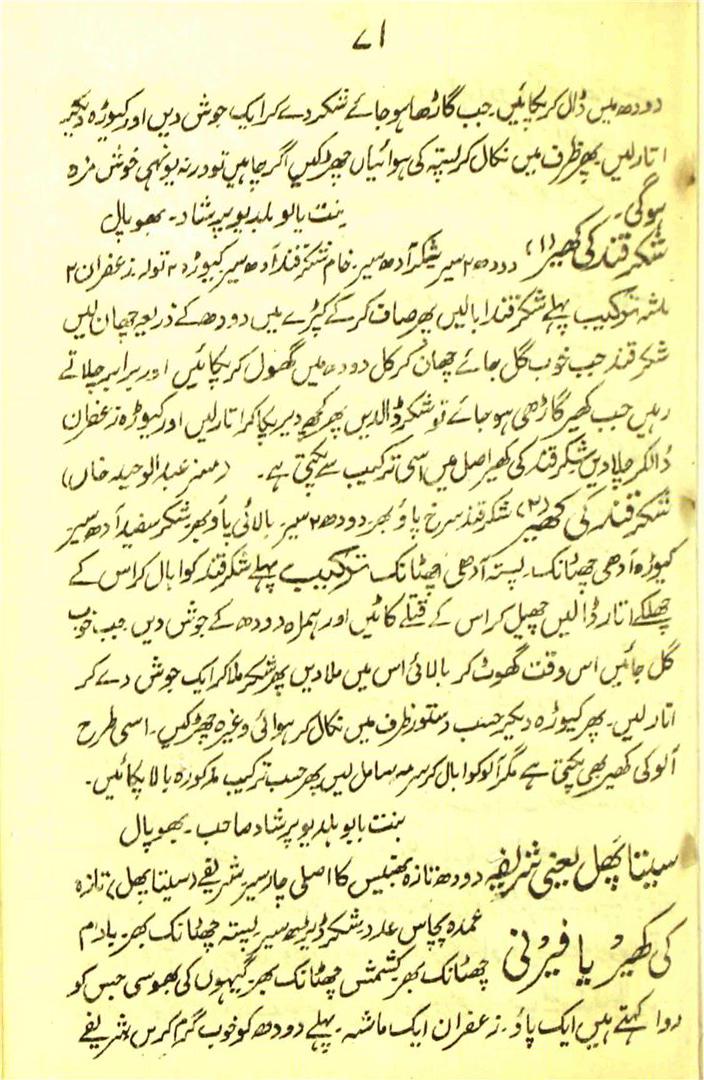 ۷۱
دودھ میں ڈال کر پکائیں۔ جب گاڑھا ہو جائے شکر دے کر ایک جوش دیں اور کیوڑہ دیکر
اتار لیں پھر ظرف میں نکال کر پستہ کی ہوائیاں چھڑکیں اگر چاہیں تو ورنہ یونہی خوش مزہ
ہوگی۔ بنت بابو بلدیو پرشاد۔ بھوپال
شکر قند کی کھیر (۱) دودھ ۲ سیر شکر آدھ سیر۔ خام شکر قند آدھ سیر کیوڑہ ۲ تولہ۔ زعفران ۲
ماشہ ترکیب پہلے شکر قند ابالیں پھر صاف کر کے کپڑے میں دودھ کے ذریعہ چھان لیں
شکر قند جب خوب گل جائے چھان کر کل دودھ میں گھول کر پکائیں اور برابر چلاتے
رہیں جب کھیر گاڑھی ہو جائے تو شکر ڈالدیں پھر کچھ دیر پکا کر اتار لیں اور کیوڑہ زعفران
ڈالکر چلا دیں شکر قند کی کھیر اصل میں اسی ترکیب سے پکتی ہے۔ (مسز عبدالوحید خاں)
شکر قند کی کھیر (۲) شکر قند سرخ پاؤ بھر دودھ ۲ سیر۔ بالائی پاؤ بھر شکر سفید آدھ سیر
کیوڑہ آدھی چھٹانک۔ پستہ آدھی چھٹانک ترکیب پہلے شکر قند کو ابال کر اس کے
چھلکے اتار ڈالیں چھیل کر اس کے قتلے کاٹیں اور ہمراہ دودھ کے جوش دیں۔ جب خوب
گل جائیں اس وقت گھوٹ کر بالائی اس میں ملا دیں پھر شکر ملا کر ایک جوش دے کر
اتار لیں۔ پھر کیوڑہ دیکر حسب دستور ظرف میں نکال کر ہوائی وغیرہ چھڑکیں۔ اسی طرح
آلو کی کھیر بھی پکتی ہے مگر آلو کو ابال کر سرمہ سا مل لیں پھر حسب ترکیب مذکورہ بالا پکائیں۔
بنت بابو بلدیو پرشاد صاحب۔ بھوپال
سیتا پھل یعنی شریفہ دودھ تازہ بھینس کا اصلی چار سیر شریفے (سیتا پھل) تازہ
کی کھیر یا فیرنی عمدہ پچاس عدد۔ شکر ڈیڑھ سیر۔ پستہ چھٹانک بھر۔ بادام
چھٹانک بھر کشمش چھٹانک بھر۔ گیہوں کی بھوسی جس کو
روا کہتے ہیں ایک پاؤ۔ زعفران ایک ماشہ۔ پہلے دودھ کو خوب گرم کریں شریفے